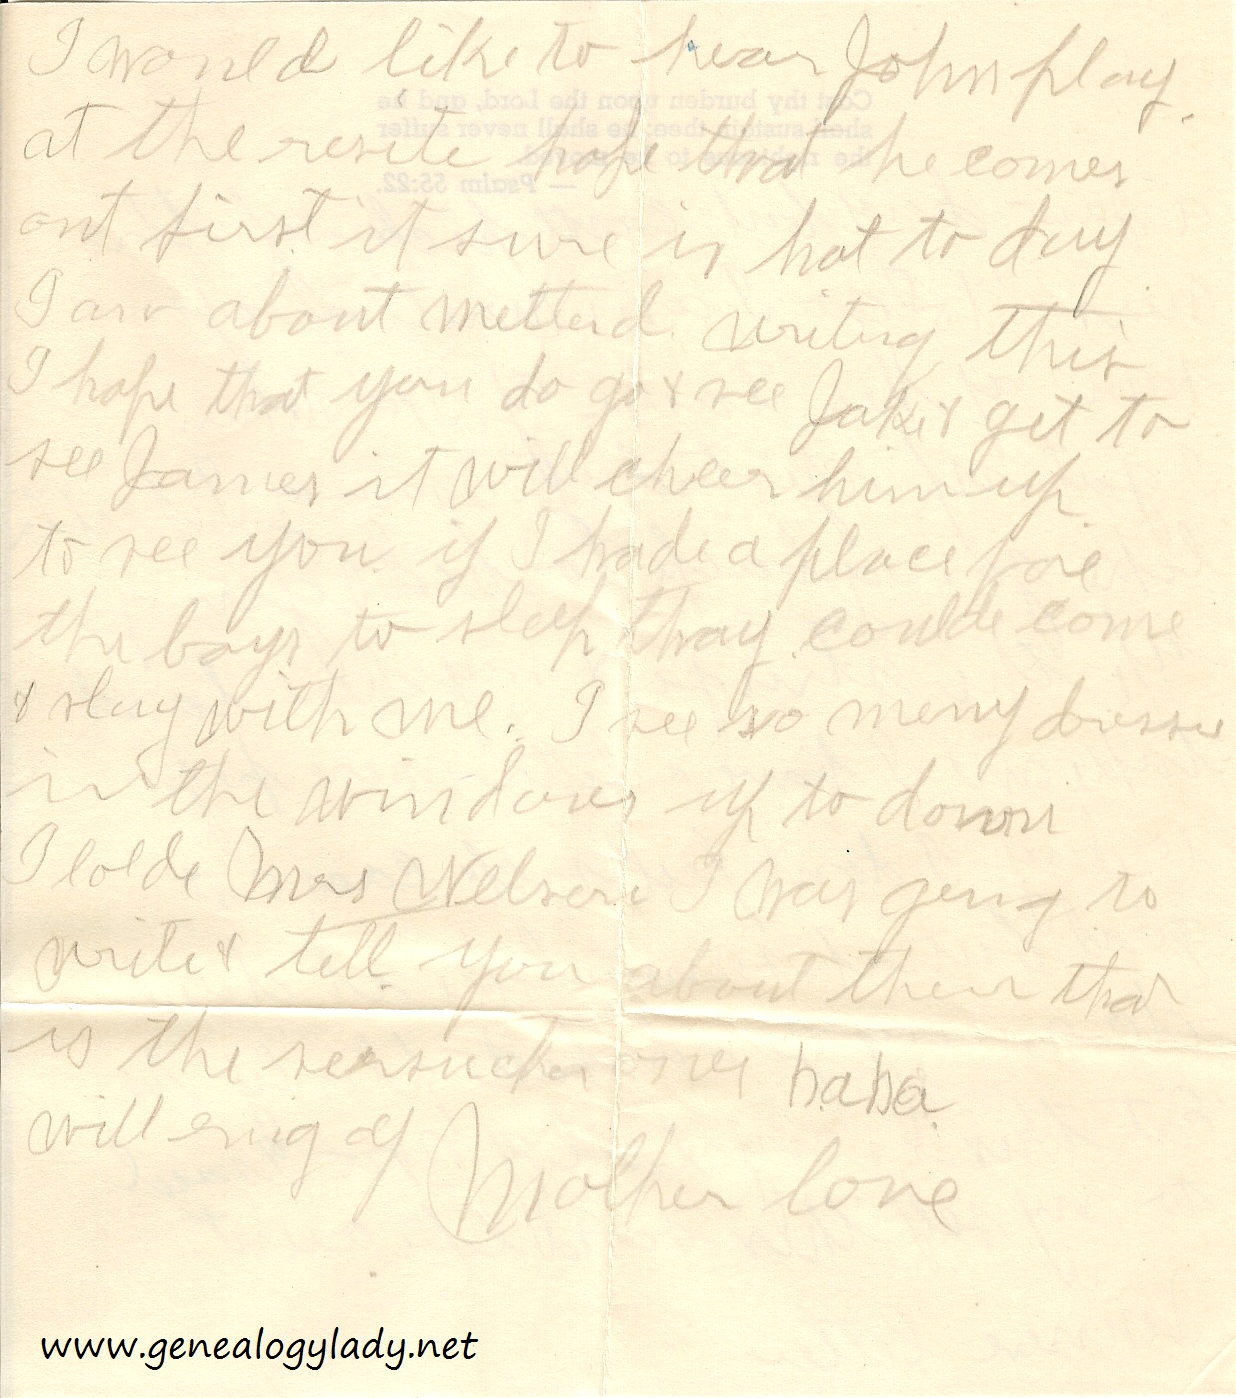 I would like to hear John play.
at the resite hope that he comes
out first it sure is hot to day
I am about metted writing this
I hope that you do go & see Jake & get to
see James it will cheer him up
to see you. if I hade a place foie
the boys to sleep thay coulde come
& stay with me. I see so meny dresses
in the windows up to down
I tolde Mrs Nelson I was going to
write & tell you about them that
is the sersucker ones haha
will ring of Mother love
Cast thy burden upon the Lord, and he
shall sustain thee; he shall never suffer
the righteous to be moved.
— Psalm 55:22.
www.genealogylady.net